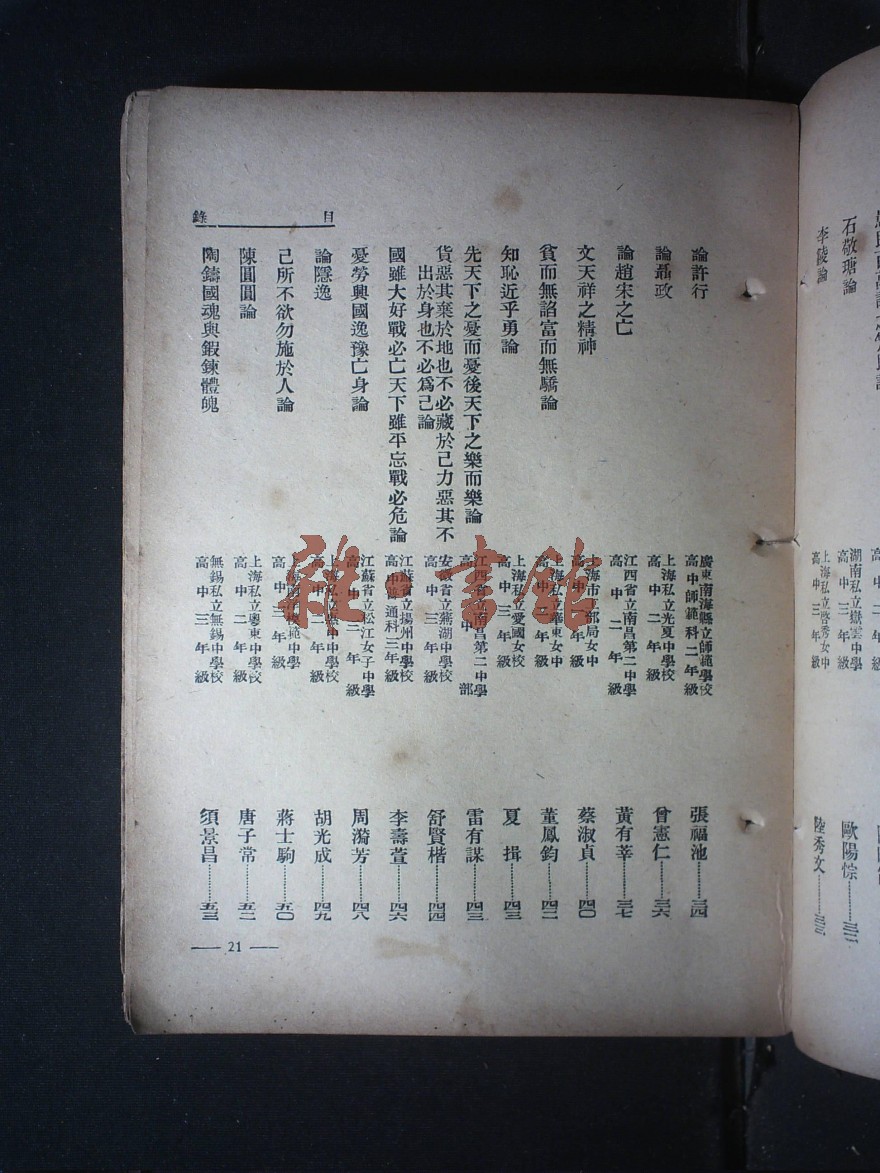 目錄
論許行
廣東南海縣立師範學校
高中師範科二年級
張福池………三四
論聶政
上海私立光夏中學校
高中二年級
曾憲仁………三六
論趙宋之亡
江西省立南昌第二中學
高中二年級
黃有莘………三七
文天祥之精神
上海市 部局女中
高 年級
蔡淑貞………四〇
貧而無諂富而無驕論
上海私立 東女中
高中 年級
董鳳鈞………四二
知恥近乎勇論
上海私立愛國女校
高中 年級
夏揖………四三
先天下之憂而憂後天下之樂而樂論
江西省立南昌第二中學
高中部
雷有謀………四三
貨惡其棄於地也不必藏於己力惡其不
出於身也不必爲己論
安徽省立蕪湖中學校
高中三年級
舒賢楷………四四
國雖大好戰必亡天下雖平忘戰必危論
江蘇省立揚州中學校
高中普通科三年級
李壽萱………四六
憂勞興國逸豫亡身論
江蘇省立松江女子中學
高中三年級
周漪芳………四八
論隱逸
上海私立 中學校
高中 年級
胡光成………四九
己所不欲勿施於人論
上海 範中學
高中三年級
蔣士駒………五〇
陳圓圓論
上海私立粵東中學校
高中二年級
唐子常………五二
陶鑄國魂與鍛鍊體魄
無錫私立無錫中學校
高中三年級
須景昌………五三
— 21 —
石敬瑭論
湖南私立嶽雲中學
高中三年級
歐陽悰………三二
李陵論
上海私立啓秀女中
高中二年級
陸秀文………三三
雜·書館